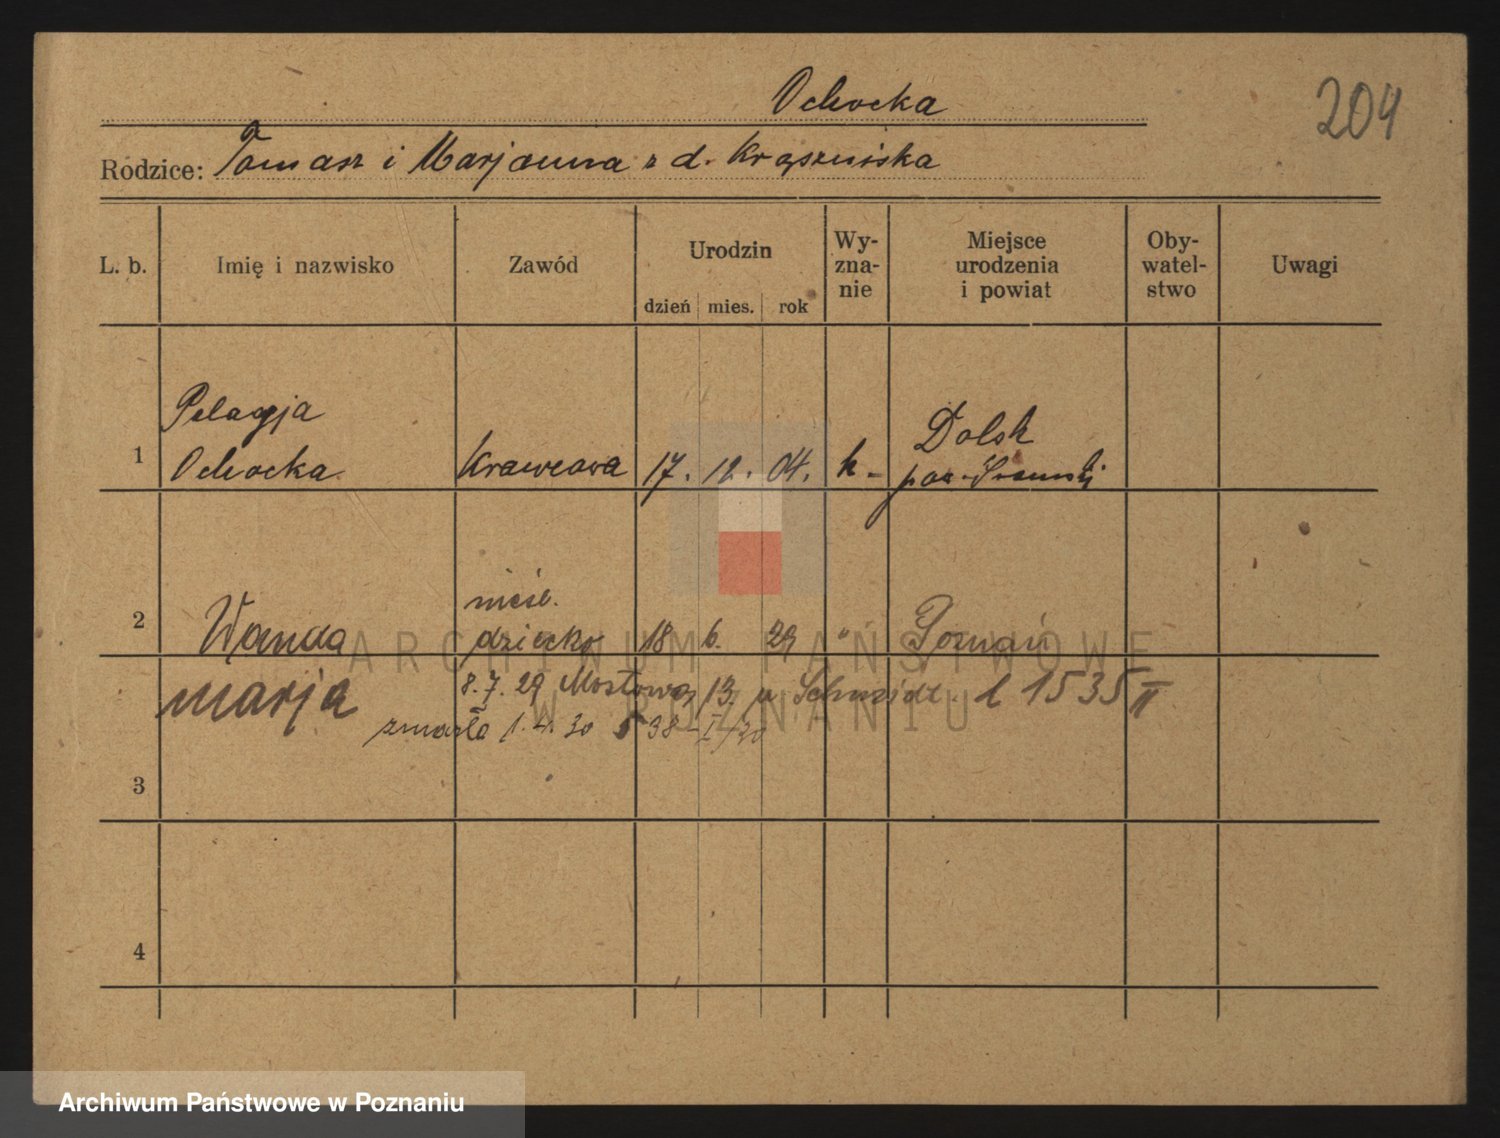 Ochocka
204
Rodzice: Tomasz i Marjanna z d.
L. b.
Imię i nazwisko
Zawód
Urodzin
dzień mies. rok
Wy-
zna-
nie
Miejsce
urodzenia
i powiat
Oby-
watel-
stwo
Uwagi
1
Pelagja
Ochocka
Krawcowa
17. 12. 04.
k-
Dolsk
pow. Śremski
2
Wanda
nieśl.
dziecko
18 6. 29
"
Poznań
marja
8.7.29 Mostowa 13. u Schmidt. l 1535 II
zmarła 1.4.30 538-I/30
3
4
ARCHIWUM PAŃSTWOWE
W POZNANIU
Archiwum Państwowe w Poznaniu